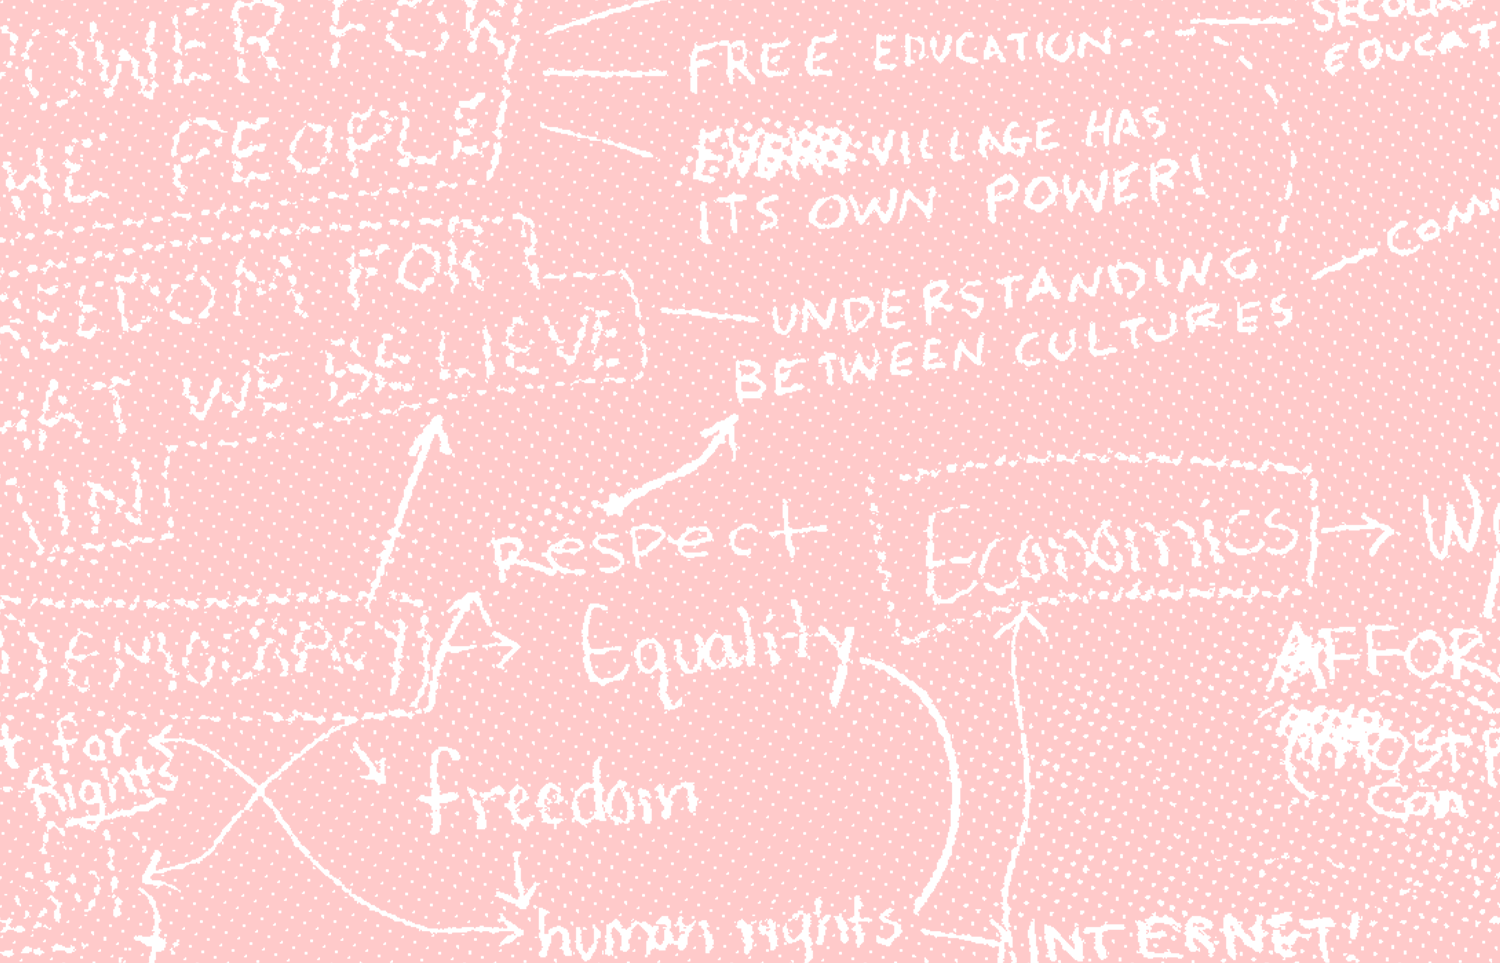 OWER FOR
HE PEOPLE
FREE EDUCATION
EDUCAT
VILLAGE HAS
ITS OWN POWER!
EEDOM FOR
AT WE BELIEVE
IN
UNDERSTANDING
BETWEEN CULTURES
COM
RESPECT
Economics
W
DEMOCRACY
Equality
AFFOR
t for
Rights
freedom
MOST P
Con
human rights
INTERNET!